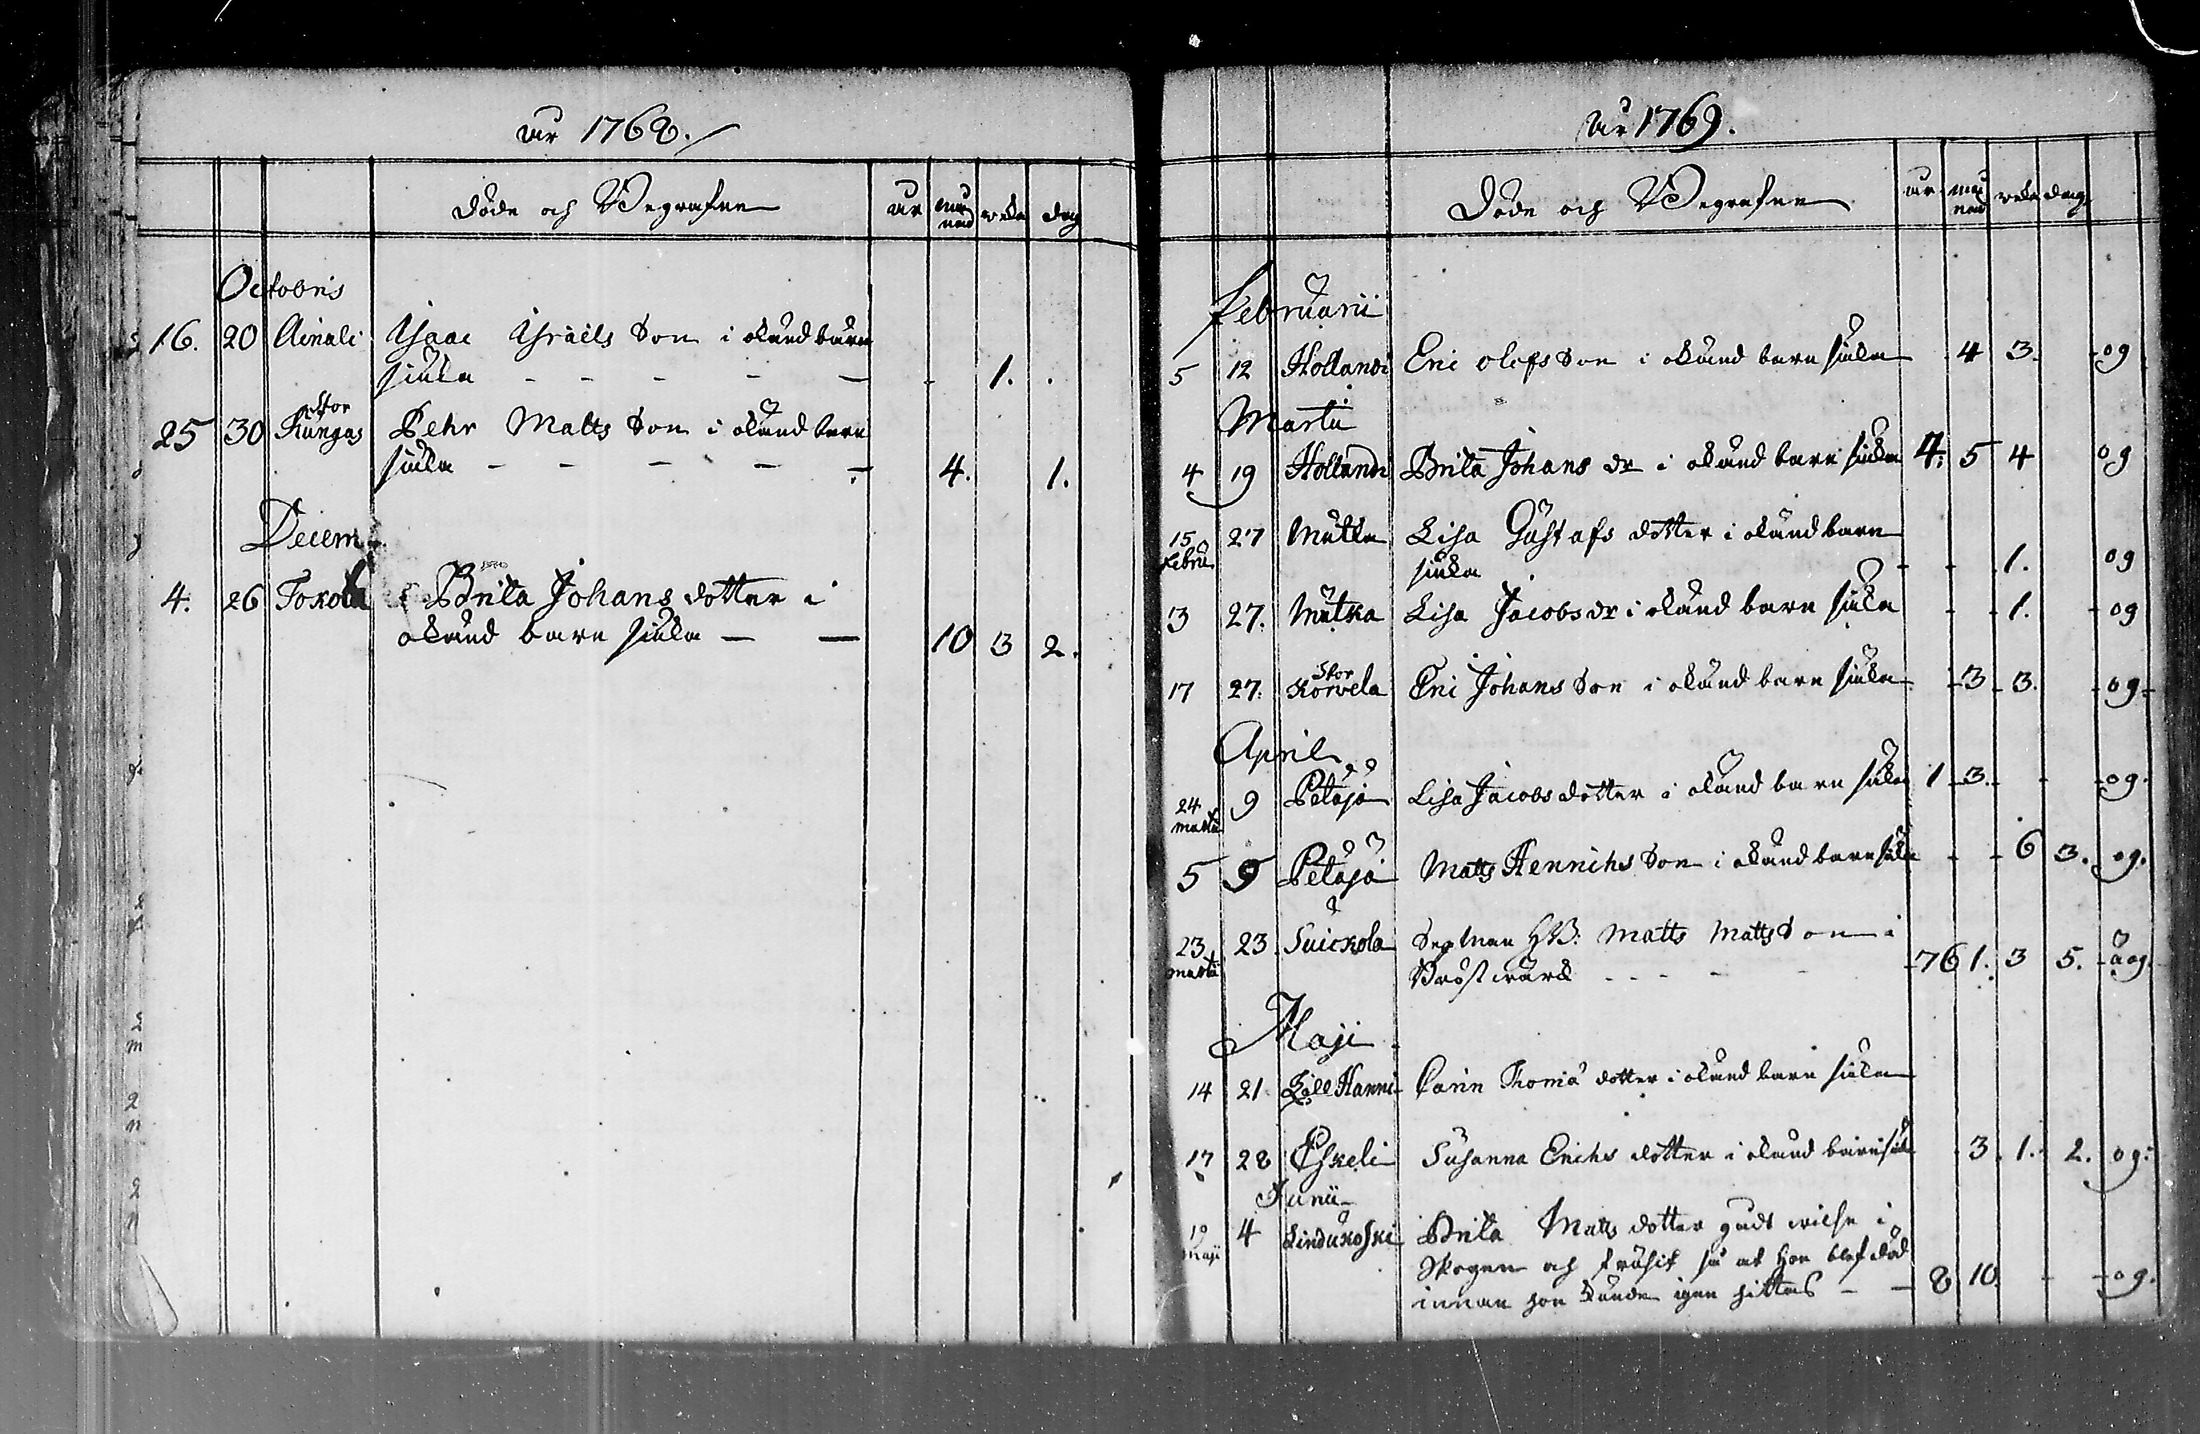 åhr 1768.
Döde och Begrafne åhr månad veka dag
Octobris
16. 20 Ainali Isaac Israels Son i okänd barn
siuka - - - - - - 1. .
Stor
25 30 Kangas Pehr Matts Son i okänd barn
siuka - - - - - 4. 1.
Decem
4. 26 Toxola Brita Johans dotter i
okänd barn siuka - - 10 3 2.
åhr 1769.
Döde och Begrafne åhr månad veka dag
Februarii
5 12 Hollandi Eric Olofs Son i okänd barn siuka 4 3. - og
Martii
4 19 Hollandi Brita Johans dr i okänd barn siuka 4: 5 4 og
15 27 Mutka Lisa Gustafs dotter i okänd barn
Febru. siuka - - 1. og
13 27. Mutka Lisa Jacobs dr i okänd barn siuka - - 1. - og
Stor
17 27. Korvela Eric Johans Son i okänd barn siuka - 3 - 3. - og -
April
24 9 Petäjä Lisa Jacobs dotter i okänd barn siuka 1 - 3. - - og.
martii
5 9 Petäjä Matts Henrichs Son i okänd barn siuka - - 6 3. og.
23 23 Suickola Matts Matts Son i
martii Bröstwärck - - - - 76 1. 3 5. - äog.
Maji
14 21 Lill Hanni Carin Thomä dotter i okänd barn siuka
17 28 Eskeli Susanna Erichs dotter i okänd barn siuk 3. 1. 2. og:
Junii
19 4 Lindukoski Brita Matts dotter gudt wilse i
Maji Skogen och frusit så at hon blef död
innan hon kunde igen hittas - - 8 10. - - og.